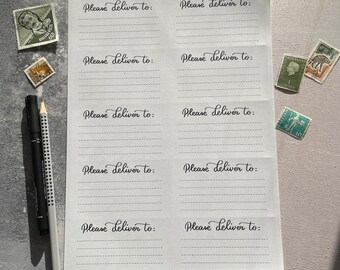 Please deliver to: Please deliver to:
Please deliver to: Please deliver to:
Please deliver to: Please deliver to:
Please deliver to: Please deliver to:
Please deliver to: Please deliver to: